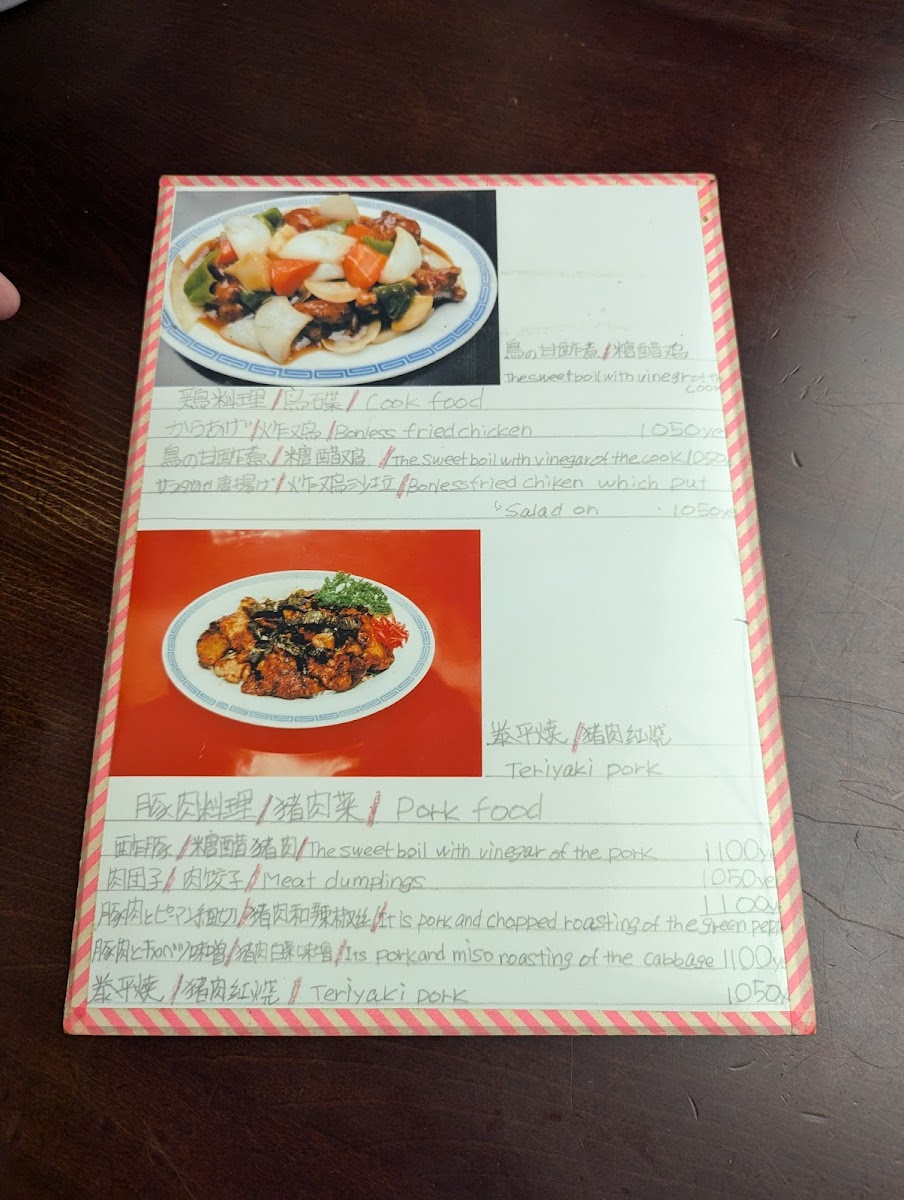 鳥の甘酢煮/糖醋鸡
The sweet boil with vinegar of the
cook
鶏料理/鸟碟/Cook food
からあげ/炸鸡/Bonless fried chicken 1050ye
鳥の甘酢煮/糖醋鸡/The sweet boil with vinegar of the cook 1050
サラダのせ唐揚げ/炸鸡沙拉/Bonless fried chiken which put
Salad on 1050ye
拳平焼/猪肉红烧
Teriyaki pork
豚肉料理/猪肉菜/Pork food
酢豚/糖醋猪肉/The sweet boil with vinegar of the pork 1100y
肉団子/肉饺子/Meat dumplings 1050ye
1100y
豚肉とピーマン細切/猪肉和辣椒丝/It is pork and chopped roasting of the green pepp
豚肉とキャベツ味噌/猪肉白菜味噌/Its pork and miso roasting of the cabbage 1100y
拳平焼/猪肉红烧/Teriyaki pork 1050y